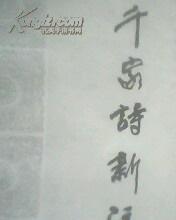 Kongfz.com
孔夫子旧书网
千家詩新注